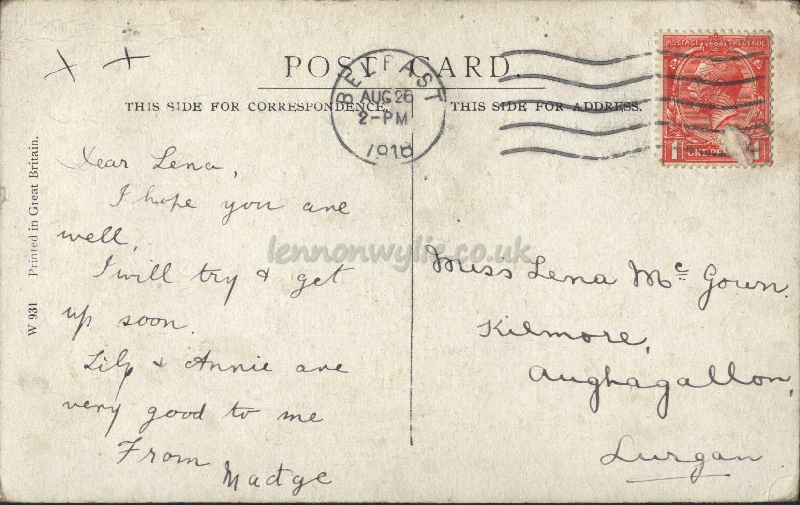 x x
POST CARD.
THIS SIDE FOR CORRESPONDENCE.
THIS SIDE FOR ADDRESS.
BELFAST
AUG 26
2-PM
1916
POSTAGE REVENUE
1
1
W 931 Printed in Great Britain.
Dear Lena,
I hope you are
well,
I will try & get
up soon.
Lily & Annie are
very good to me
From Madge
Miss Lena Mc Gown.
Kilmore,
Aughagallon,
Lurgan.
lennonwylie.co.uk